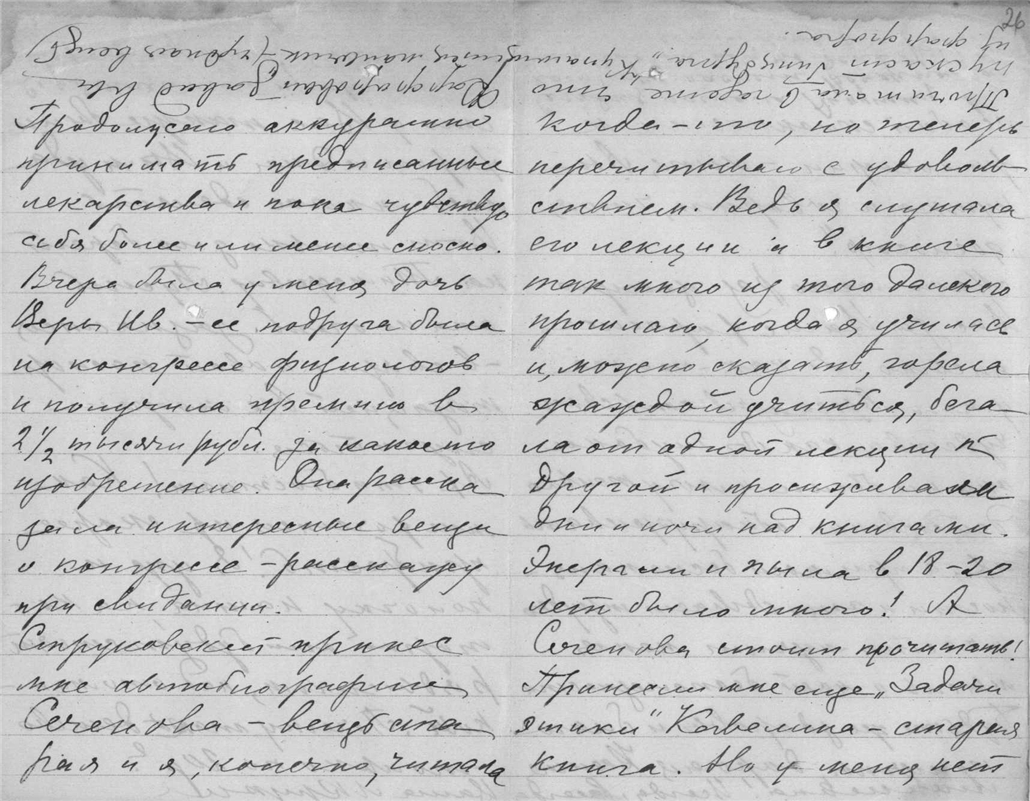 26
Продолжаю аккуратно
принимать предписанные
лекарства и пока чувствую
себя более или менее сносно.
Вчера была у меня дочь
Веры Ив. – ее подруга была
на конгрессе физиологов
и получила премию в
2 1/2 тысячи рубл. за какое то
изобретение. Она расска
зала интересные вещи
о конгрессе – расскажу
при свидании.
Струковский принес
мне автобиографию
Сеченова – вещь ста
рая и я, конечно, читала
когда-то, но теперь
перечитываю с удоволь
ствием. Ведь я слушала
его лекции и в книге
так много из того далекого
прошлого, когда я училась
и, можно сказать, горела
жаждой учиться, бега
ла от одной лекции к
другой и просиживала
дни и ночи над книгами.
Энергии и пыла в 18–20
лет было много! А
Сеченова стоит прочитать!
Принесли мне еще „Задачи
этики" Кавелина – старая
книга. Но у меня нет
Прочитала в газете, что
Фарфоровый завод
пускает Гинцбурга „Купающийся мальчик" – чудная вещь
из фарфора.